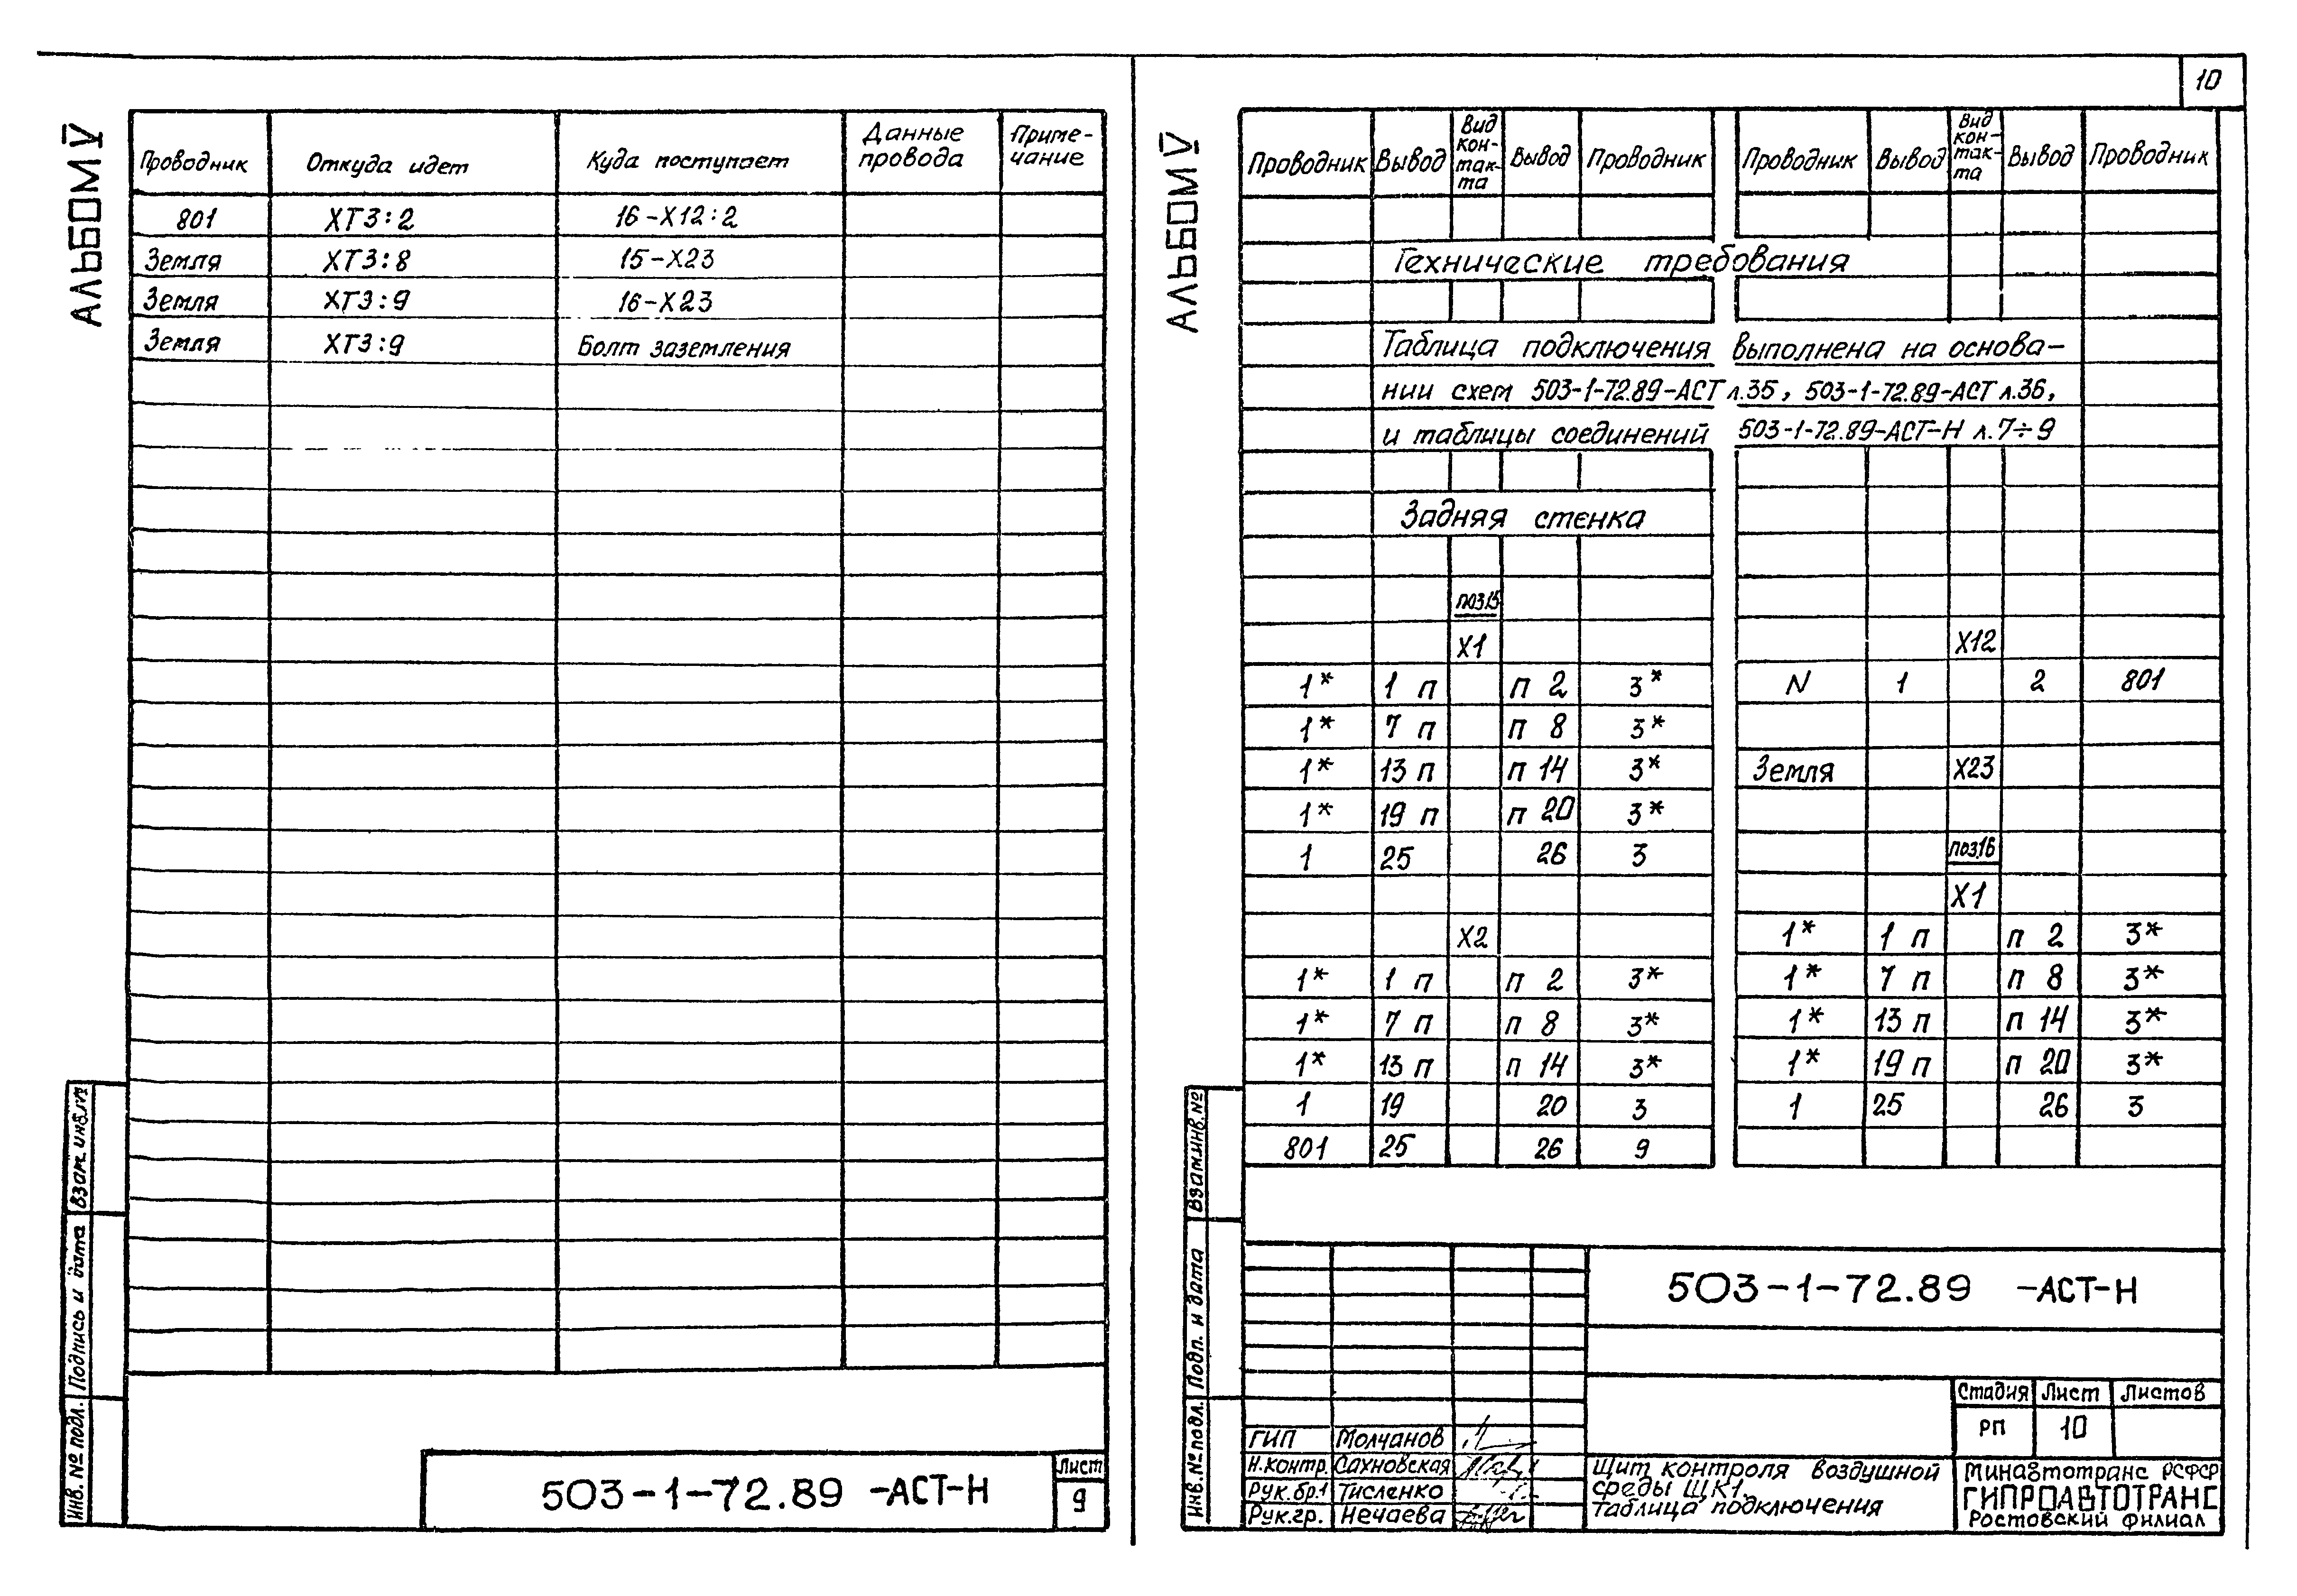 АЛЬБОМ V
Проводник Откуда идет Куда поступает Данные провода Приме-чание
801 ХТ3:2 16-Х12:2
Земля ХТ3:8 15-Х23
Земля ХТ3:9 16-Х23
Земля ХТ3:9 Болт заземления
Инв. № подл. Подпись и дата Взам. инв. №
503-1-72.89 -АСТ-Н
Лист
9
10
АЛЬБОМ V
Проводник Вывод Вид кон-так-та Вывод Проводник
Проводник Вывод Вид кон-так-та Вывод Проводник
Технические требования
Таблица подключения выполнена на основа-
нии схем 503-1-72.89-АСТ л.35, 503-1-72.89-АСТ л.36,
и таблицы соединений 503-1-72.89-АСТ-Н л.7÷9
Задняя стенка
поз.15
Х1
1* 1 п п 2 3*
1* 7 п п 8 3*
1* 13 п п 14 3*
1* 19 п п 20 3*
1 25 26 3
Х2
1* 1 п п 2 3*
1* 7 п п 8 3*
1* 13 п п 14 3*
1 19 20 3
801 25 26 9
Х12
N 1 2 801
Земля Х23
поз.16
Х1
1* 1 п п 2 3*
1* 7 п п 8 3*
1* 13 п п 14 3*
1* 19 п п 20 3*
1 25 26 3
Инв. № подл. Подп. и дата Взам.инв.№
503-1-72.89 -АСТ-Н
Стадия Лист Листов
РП 10
ГИП Молчанов
Н.контр. Сахновская
Рук.бр.1 Тисленко
Рук.гр. Нечаева
Щит контроля воздушной
среды ЩК1.
Таблица подключения
Минавтотранс РСФСР
ГИПРОАВТОТРАНС
Ростовский филиал